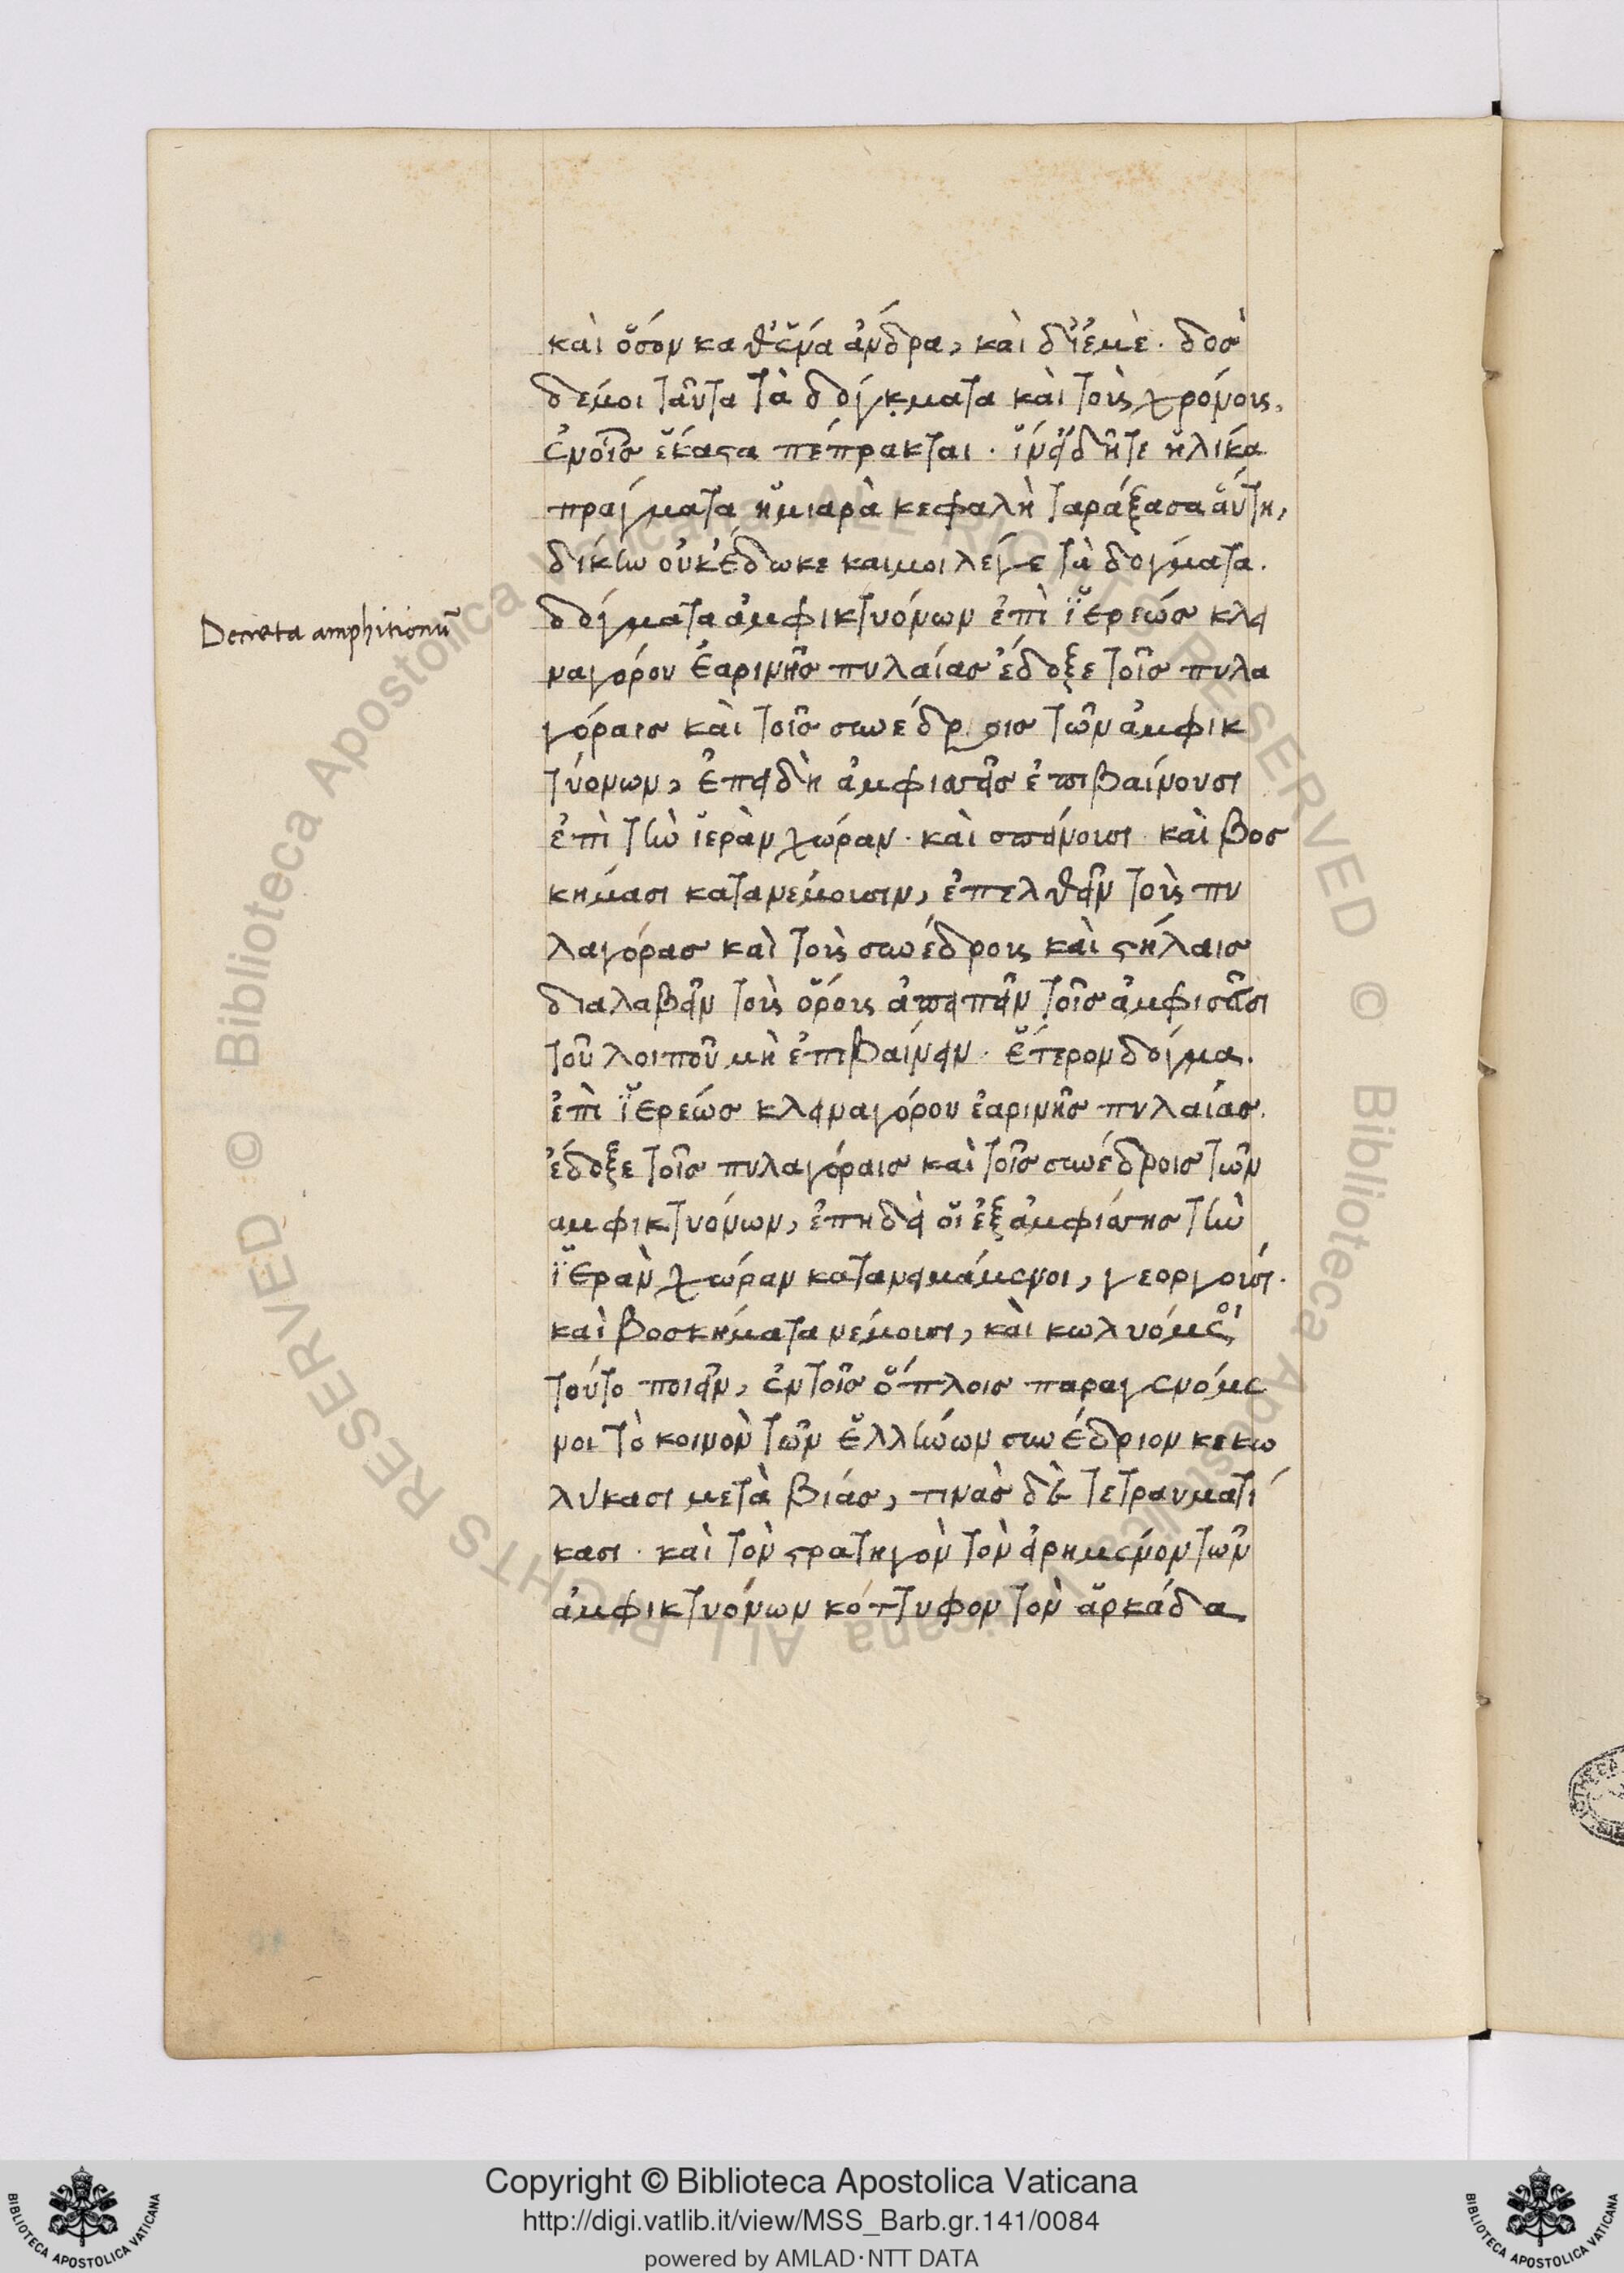 καὶ ὅσον καθ' ἕνα ἄνδρα, καὶ δι' ἐμὲ. δοσ
δέμοι ταῦτα τὰ δόγματα καὶ τοὺς χρόνους,
ἐν οἷσ ἕκαστα πέπρακται. ἵν' εἰδῆτε ἡλίκα
πράγματα ἡ μιαρὰ κεφαλὴ ταράξασα αὕτη,
δίκην οὐκ έδωκε καιμοι λέγε τὰ δογματα.
Decreta amphitionū
δόγματα ἀμφικτυόνων ἐπὶ ἱερεώσ κλει
ναγόρου ἐαρινῆσ πυλαίασ ἔδοξε τοῖσ πυλα
γόραισ καὶ τοῖσ συνέδροισ τῶν ἀμφικ
τύονων, ἐπειδὴ ἀμφισσεῖσ ἐπιβαίνουσι
ἐπὶ τὴν ἱερὰν χώραν. καὶ σπείνουσι. καὶ βοσ
κήμασι κατανέμουσιν, ἐπελθεῖν τοὺς πυ
λαγόρασ καὶ τοὺς συνέδρους καὶ στήλαισ
διαλαβεῖν τοὺς ὅρους ἀπειπεῖν τοῖσ ἀμφισεῦσι
τοῦ λοιποῦ μὴ ἐπιβαίνειν. ἕτερον δόγμα.
ἐπὶ ἱερεώσ κλειναγόρου ἐαρινῆσ πυλαίασ.
ἔδοξε τοῖσ πυλαγόραισ καὶ τοῖσ συνέδροισ τῶν
αμφικτυόνων, ἐπηδεὶ οἱ ἐξ ἀμφίσσησ τὴν
ἱεραν χώραν κατανειμάμενοι, γεοργούσι.
καὶ βοσκήματα νέμουσι, καὶ κωλυόμενοι
τούτο ποιεῖν, ἐν τοῖσ ὅπλοισ παραγενόμε
νοι τὸ κοινὸν τῶν ἑλλήνων συνέδριον κεκω
λύκασι μετὰ βιάσ, τινασ δὲ τετραυματί
κασι. καὶ τὸν στρατηγὸν τὸν εἰρημένον τῶν
ἀμφικτυόνων κόττυφον τὸν ἀρκάδα